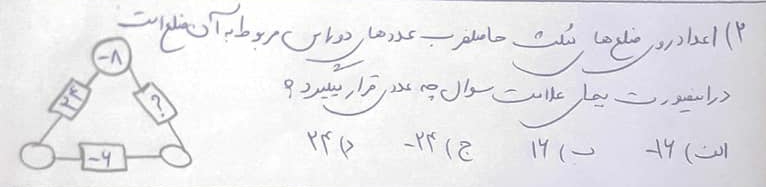 ۲) اعداد روی ضلع‌های مثلث حاصلضرب عددهای دو راس مربوط به آن ضلع است
در اینصورت بجای علامت سوال چه عددی قرار بگیرد؟
الف) ۱۶- ب) ۱۶ ج) ۲۴- د) ۲۴
-۸
۲۴ ?
-۶